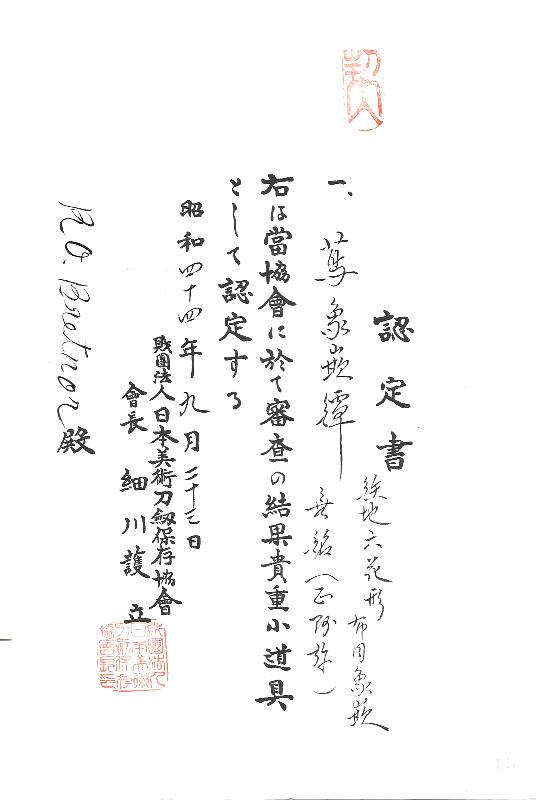 認定書
鉄地六花形 布目象嵌
一、蔦象嵌鐔
無銘(正阿弥)
右は當協會に於て審査の結果貴重小道具
として認定する
昭和四十四年九月二十三日
財團法人日本美術刀劍保存協會
會長 細川護立
R. O. Bretnor 殿